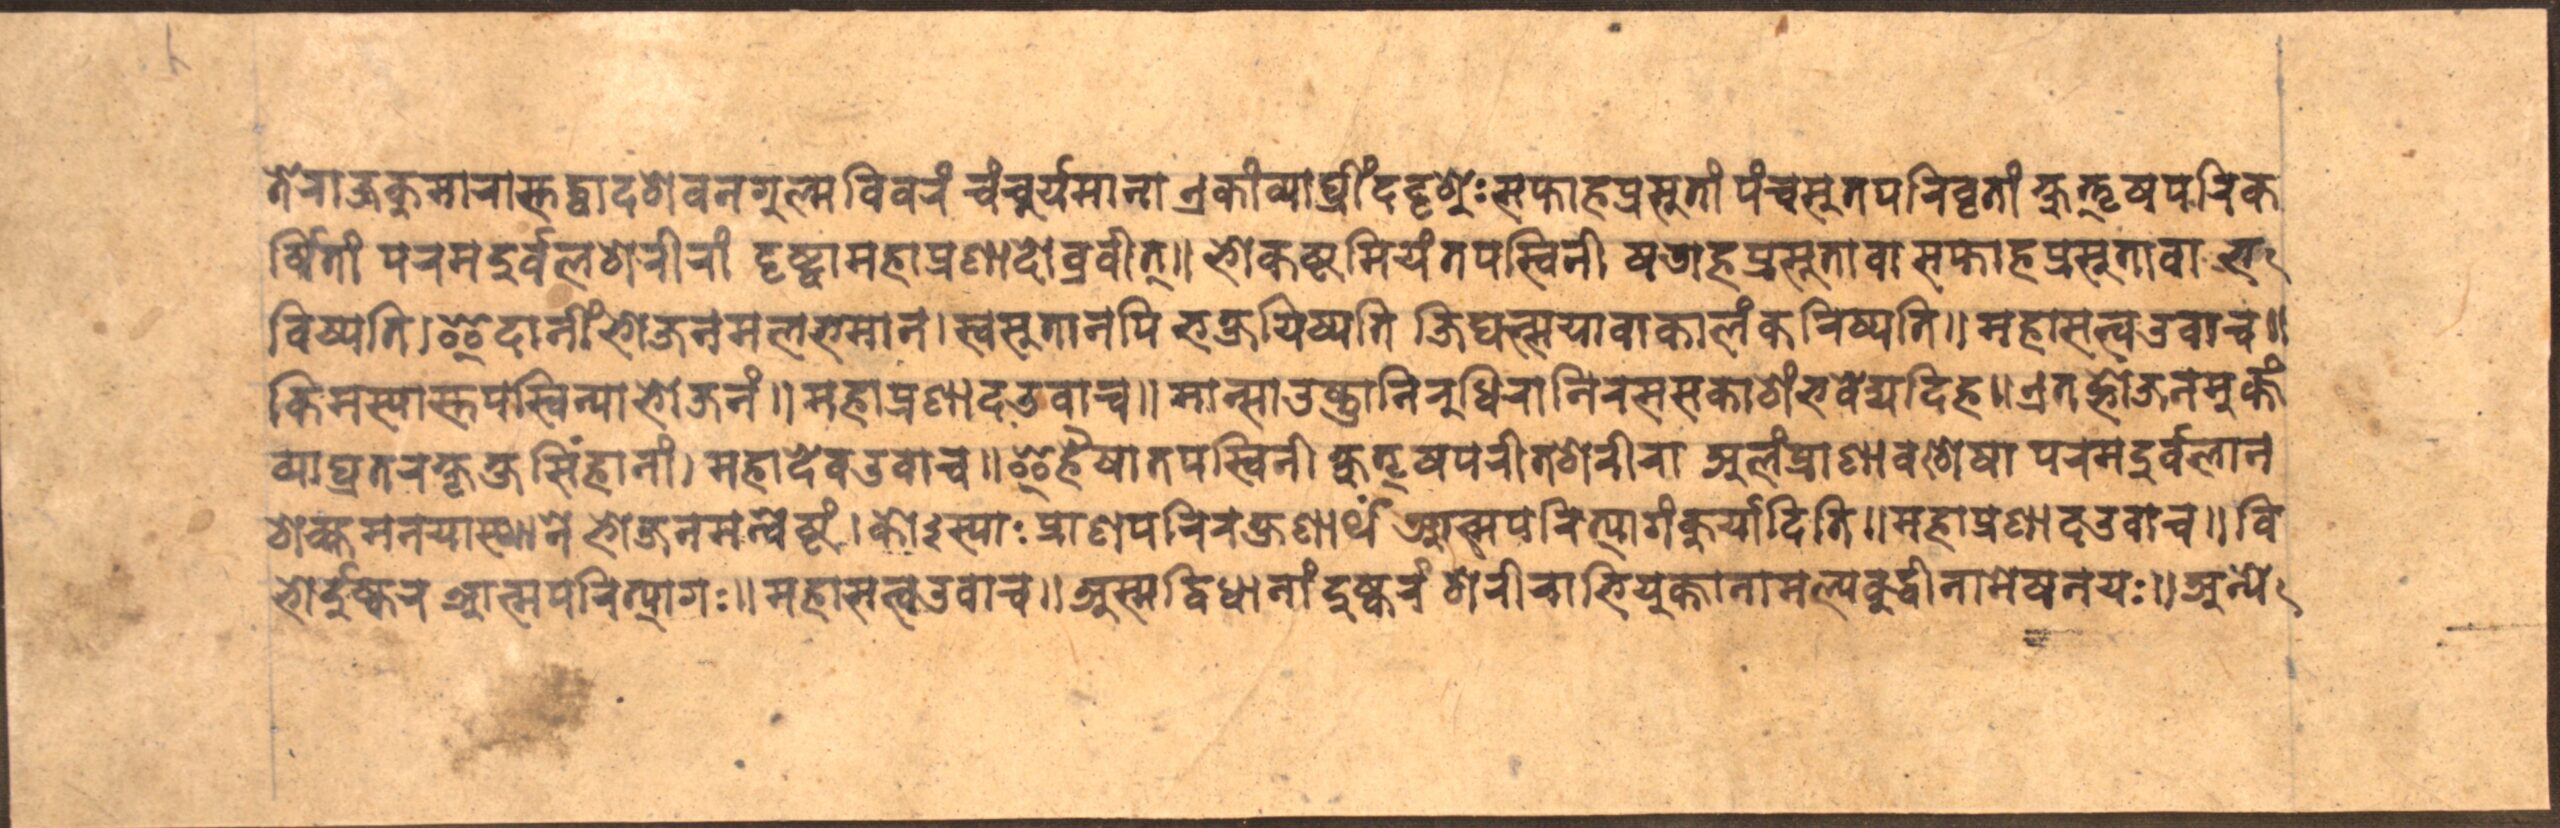 ते राजकुमारास्तद्वादशवनगुल्मविवरं चंचुर्यमाना एकां व्याघ्रीं ददृशुः सप्ताहप्रसुतां पंचसुतपरिवृतां क्षुत्तृषपरिक
र्षितां परमदुर्वलशरीरां दृष्ट्वा महाप्रणादोव्रवीत्॥ भो कष्टमियं तपस्विनी षडाहप्रसूता वा सप्ताहप्रसूता वा भ
विष्यति। इदानीं भोजनमलभमान। स्वसुतानपि भक्षयिष्यति जिघत्सया वा कालं करिष्यति॥ महासत्त्व उवाच॥
किमस्यास्तपस्विन्या भोजनं॥ महाप्रणाद उवाच॥ मान्साउष्त्रानि रुधिरानि रससकाशं भवेद्यदिह॥ एतद्भोजनमुक्तं
व्याघ्रतरक्षृक्षसिंहानां। महादेव उवाच॥ इहैषा तपस्विनी क्षुत्तृषपरीतशरीरा अलंप्राणावशेषा परमदुर्वला न
शक्तमनया स्थाने भोजनमन्वेष्टुं। कोऽस्याः प्राणपरिरक्षणार्थं आत्मपरित्यागं कुर्यादिति॥ महाप्रणाद उवाच॥ वि
भो र्दुष्कर आत्मपरित्यागः॥ महासत्त्व उवाच॥ अस्मद्विधानां दुष्करं शरीराभियुक्तानामल्पवुद्धीनामेष नयः॥ अन्ये